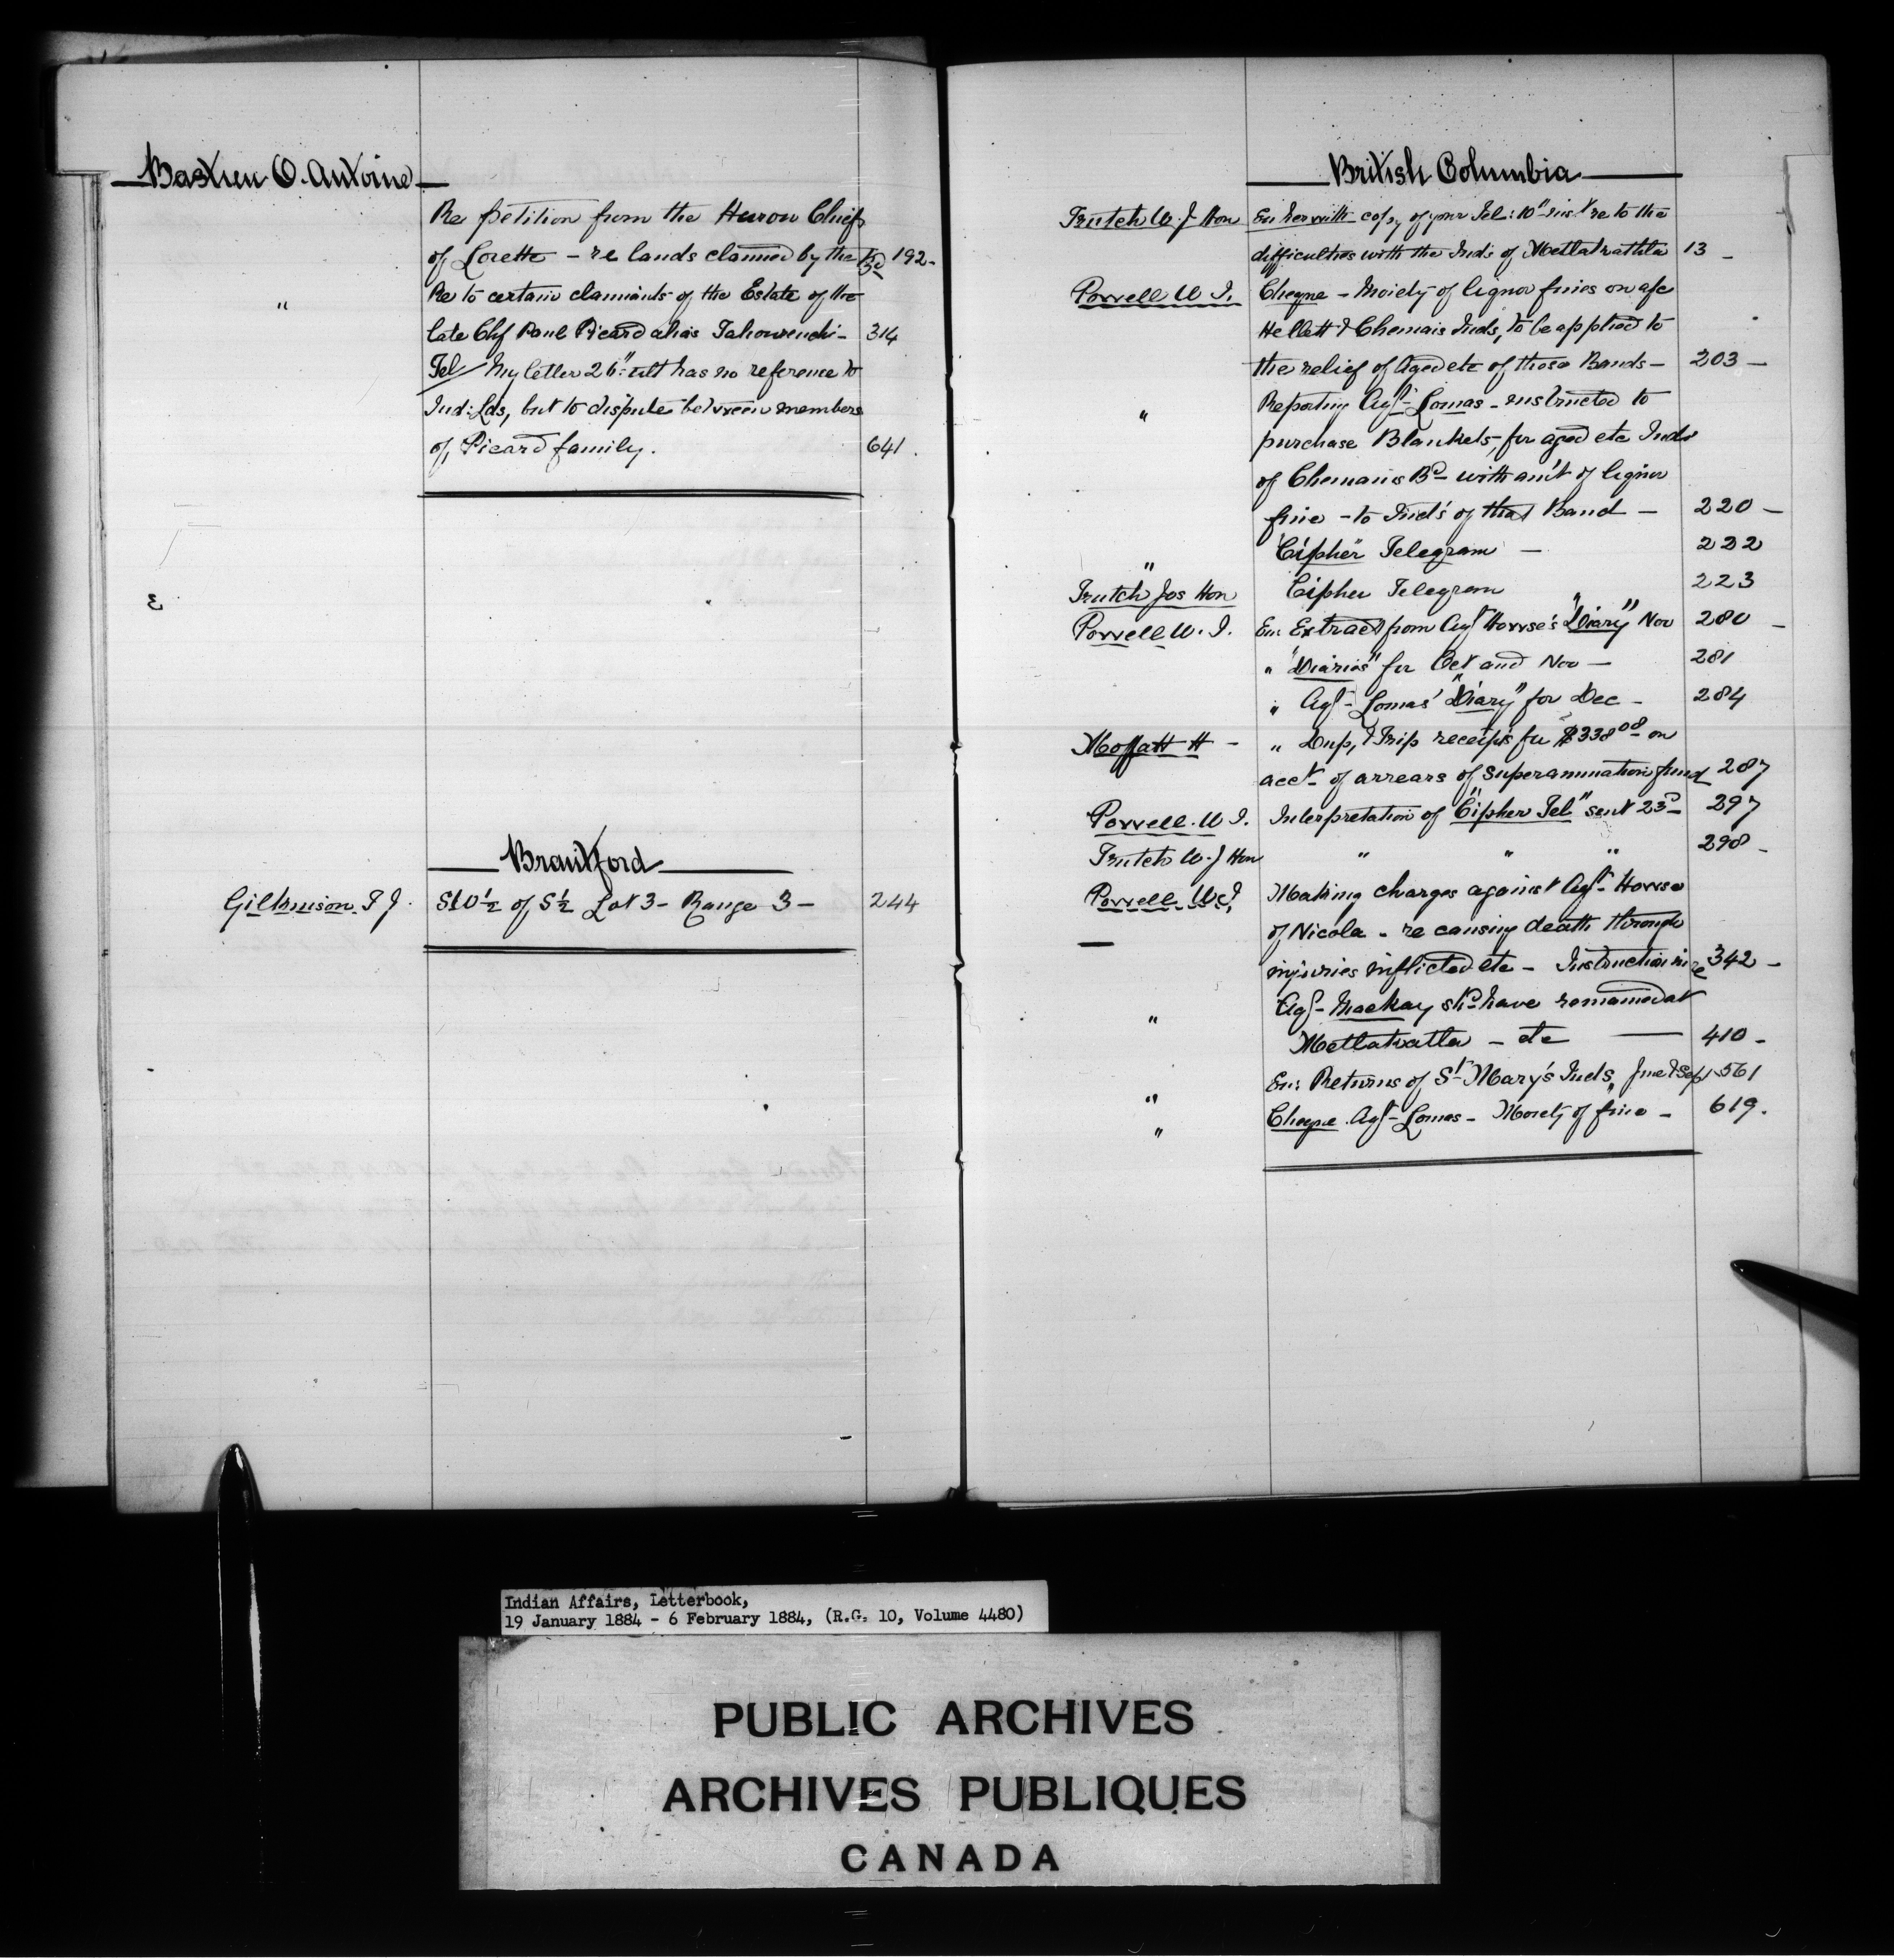 Bastien O. Antoine
Re petition from the Huron Chiefs
of Lorette - re lands claimed by the Bd 192-
" Re to certain claimants of the Estate of the
late Chf Paul Picard alias Tahourenche - 314
Tel/ My letter 26" ult has no reference to
Ind: Lds, but to dispute between members
of, Picard family. 641.
Brantford
Gilkinson J J. SW ½ of S½ Lot 3 - Range 3 - 244
British Columbia
Trutch W. J Hon En: herewith copy of your Tel: 10" inst re to the
difficulties with the Inds of Metlakathla 13 -
Powell W I. Cheque - Moiety of liquor fines on a/c
Hellett & Chemais Inds, to be applied to
the relief of Aged etc of those Bands - 203 -
" Reporting Agt- Lomas - instructed to
purchase Blankets, for aged etc Inds
of Chemanis Bd with am't of liquor
fine - to Ind's of that Band - 220 -
" "Cipher" Telegram - 222
Trutch Jos Hon Cipher Telegram 223
Powell W. I. En: Extract from Agt Howse's "Diary" Nov 280 -
" "Diaries" for Oct and Nov - 281
" Agt- Lomas' "Diary" for Dec - 284
Moffatt H - " Dup, & Trip receipts for $338.08 on
acct of arrears of Superannuation fund 287
Powell. W I. Interpretation of "Cipher Tel" sent 23d - 297
Trutch W. J Hon " " " 298 -
Powell W. I, Making charges against Agt- Howse
of Nicola - re causing death through
injuries inflicted etc - Instruction in re 342 -
" Agt- Mackay shd have remained at
Metlakatla - etc 410 -
" En: Returns of St Mary's Inds, June & Sep 561
" Cheque Agt- Lomas - Moiety of fine - 619.
Indian Affairs, Letterbook,
19 January 1884 - 6 February 1884, (R.G. 10, Volume 4480)
PUBLIC ARCHIVES
ARCHIVES PUBLIQUES
CANADA